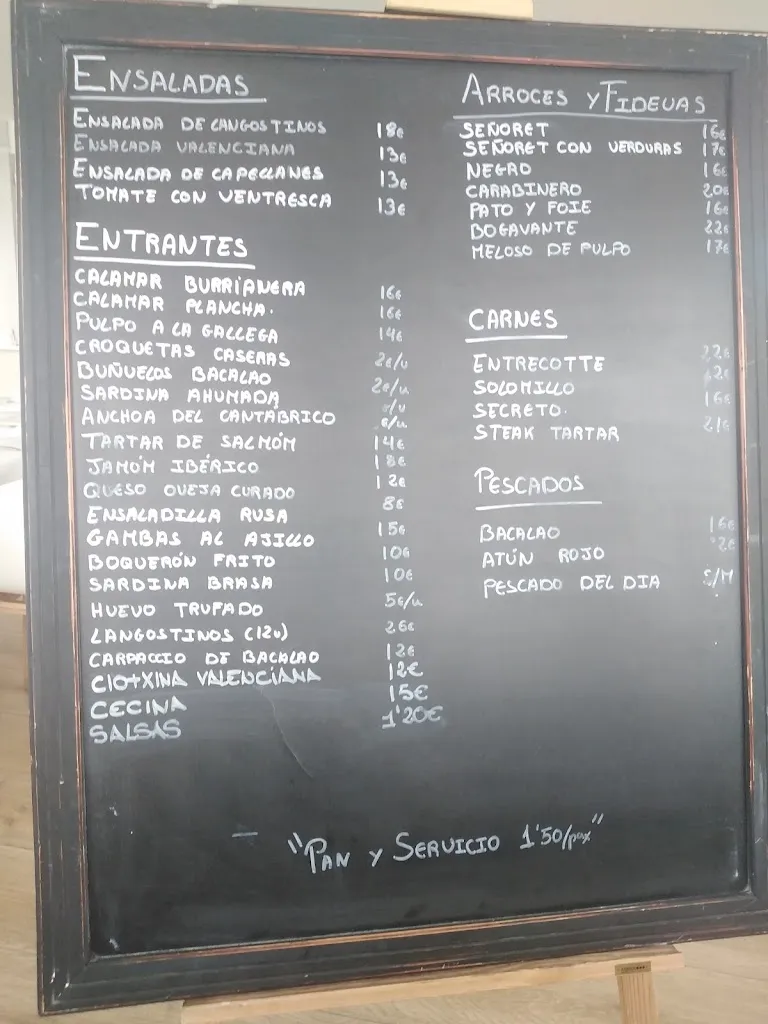 ENSALADAS
ENSALADA DE LANGOSTINOS 18€
ENSALADA VALENCIANA 13€
ENSALADA DE CAPELLANES 13€
TOMATE CON VENTRESCA 13€
ENTRANTES
CALAMAR BURRIANERA 16€
CALAMAR PLANCHA. 16€
PULPO A LA GALLEGA 14€
CROQUETAS CASERAS 2€/u
BUÑUELOS BACALAO 2€/u
SARDINA AHUMADA €/u
ANCHOA DEL CANTÁBRICO €/u
TARTAR DE SALMÓN 14€
JAMÓN IBÉRICO 18€
QUESO OVEJA CURADO 12€
ENSALADILLA RUSA 8€
GAMBAS AL AJILLO 15€
BOQUERÓN FRITO 10€
SARDINA BRASA 10€
HUEVO TRUFADO 5€/u
LANGOSTINOS (12u) 26€
CARPACCIO DE BACALAO 12€
CLOTXINA VALENCIANA 12€
CECINA 15€
SALSAS 1'20€
ARROCES Y FIDEUAS
SEÑORET 16€
SEÑORET CON VERDURAS 17€
NEGRO 16€
CARABINERO 20€
PATO Y FOIE 16€
BOGAVANTE 22€
MELOSO DE PULPO 17€
CARNES
ENTRECOTTE 22€
SOLOMILLO
SECRETO. 16€
STEAK TARTAR 21€
PESCADOS
BACALAO 16€
ATÚN ROJO
PESCADO DEL DIA S/M
"PAN Y SERVICIO 1'50/pax"